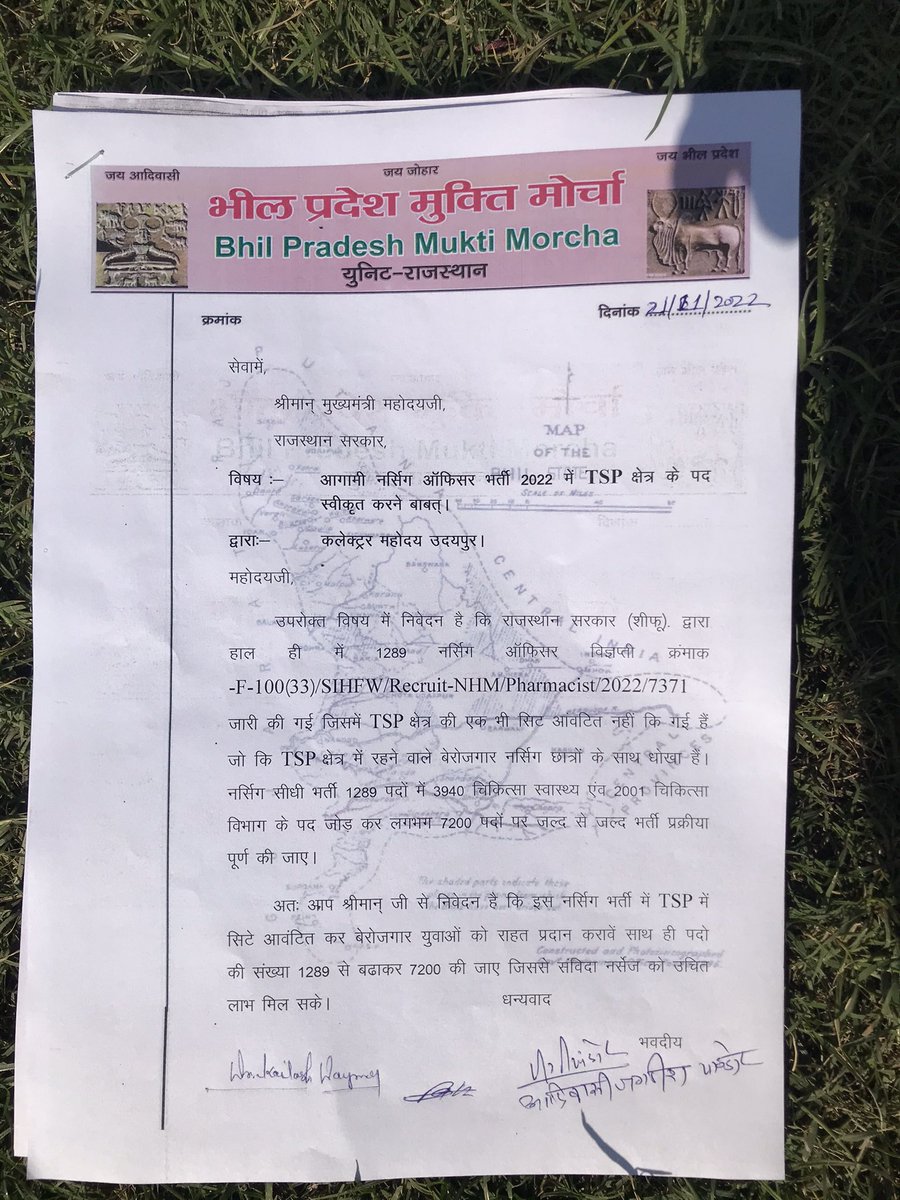 जय आदिवासी
जय जोहार
जय भील प्रदेश
भील प्रदेश मुक्ति मोर्चा
Bhil Pradesh Mukti Morcha
युनिट-राजस्थान
क्रमांक
दिनांक 21/11/2022
सेवामें,
श्रीमान् मुख्यमंत्री महोदयजी,
राजस्थान सरकार,
MAP
OF THE
SCALE OF MILES
विषय :– आगामी नर्सिग ऑफिसर भर्ती 2022 में TSP क्षेत्र के पद
स्वीकृत करने बाबत्।
द्वाराः– कलेक्ट्रर महोदय उदयपुर।
महोदयजी,
उपरोक्त विषय में निवेदन है कि राजस्थान सरकार (शीफू). द्वारा
हाल ही में 1289 नर्सिग ऑफिसर विज्ञप्ती क्रंमाक
-F-100(33)/SIHFW/Recruit-NHM/Pharmacist/2022/7371
जारी की गई जिसमें TSP क्षेत्र की एक भी सिट आवंटित नहीं कि गई हैं
जो कि TSP क्षेत्र में रहने वाले बेरोजगार नर्सिग छात्रों के साथ धोखा हैं।
नर्सिग सीधी भर्ती 1289 पदों में 3940 चिकित्सा स्वास्थ्य एंव 2001 चिकित्सा
विभाग के पद जोड़ कर लगभग 7200 पदों पर जल्द से जल्द भर्ती प्रक्रीया
पूर्ण की जाए।
The shaded parts indicate these
अतः आप श्रीमान् जी से निवेदन है कि इस नर्सिग भर्ती में TSP में
सिटे आवंटित कर बेरोजगार युवाओं को राहत प्रदान करावें साथ ही पदो
Constructed and Photozincographed
की संख्या 1289 से बढाकर 7200 की जाए जिससे संविदा नर्सेज को उचित
लाभ मिल सके।
धन्यवाद
भवदीय